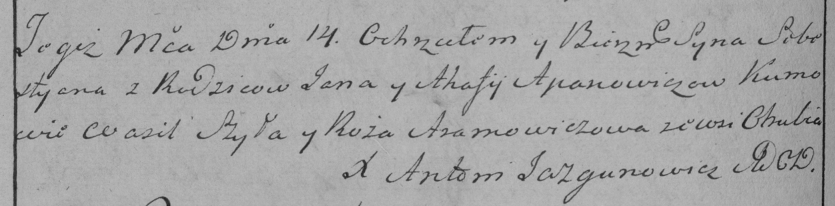 Tegiż Mca Dnia 14. Ochrzciłem y Bierzm Syna Seba
styana z Rodzicow Jana y Ahafij Apanowiczow Kumo
wie Wasil Szyła y Roża Aramowiczowa ze wsi
X Antoni Jazgunowicz